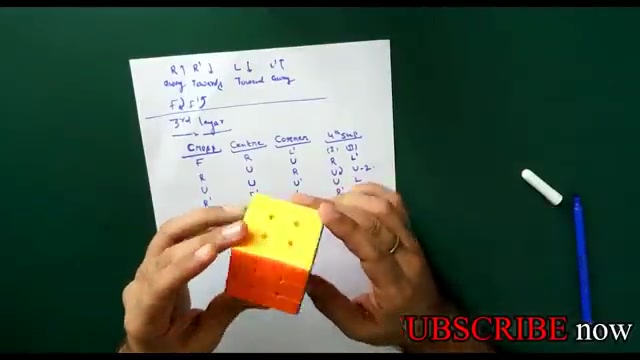 R↑ R' ↓ L ↓ L' ↑
Away Towards Toward Away
3rd layer
Cross Centre Corner 4th Step
F R L' (I) (II)
R U U R L'
U U R U2 U-2
R' U' U L
R'
UBSCRIBE now